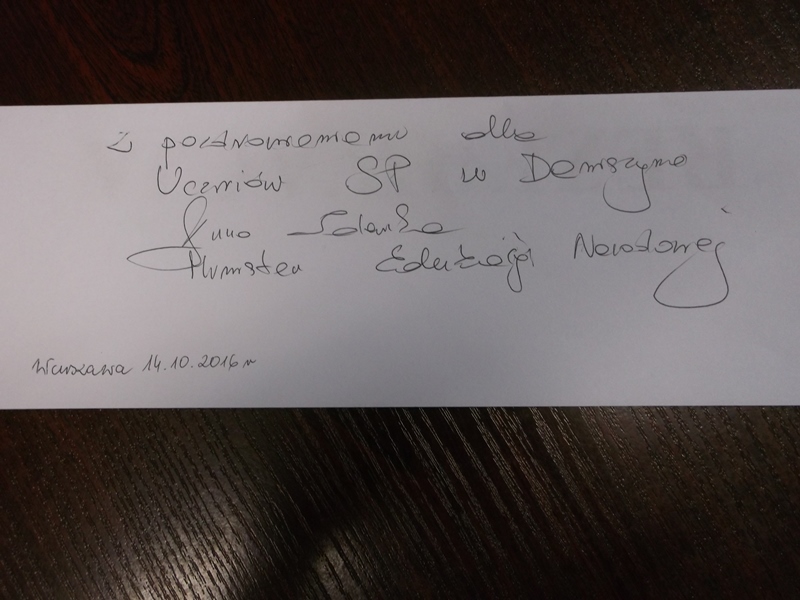 Z pozdrowieniami dla
Uczniów SP w Demszynie
Anna Zalewska
Minister Edukacji Narodowej
Warszawa 14.10.2016 r